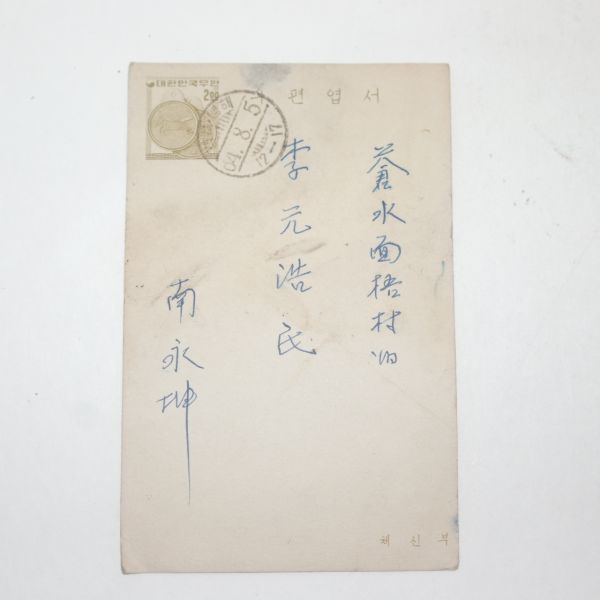 대한민국우표
2.00
64.8.5
17-17
편엽서
蒼水面梧村洞
李元浩氏
南永坤
체신부